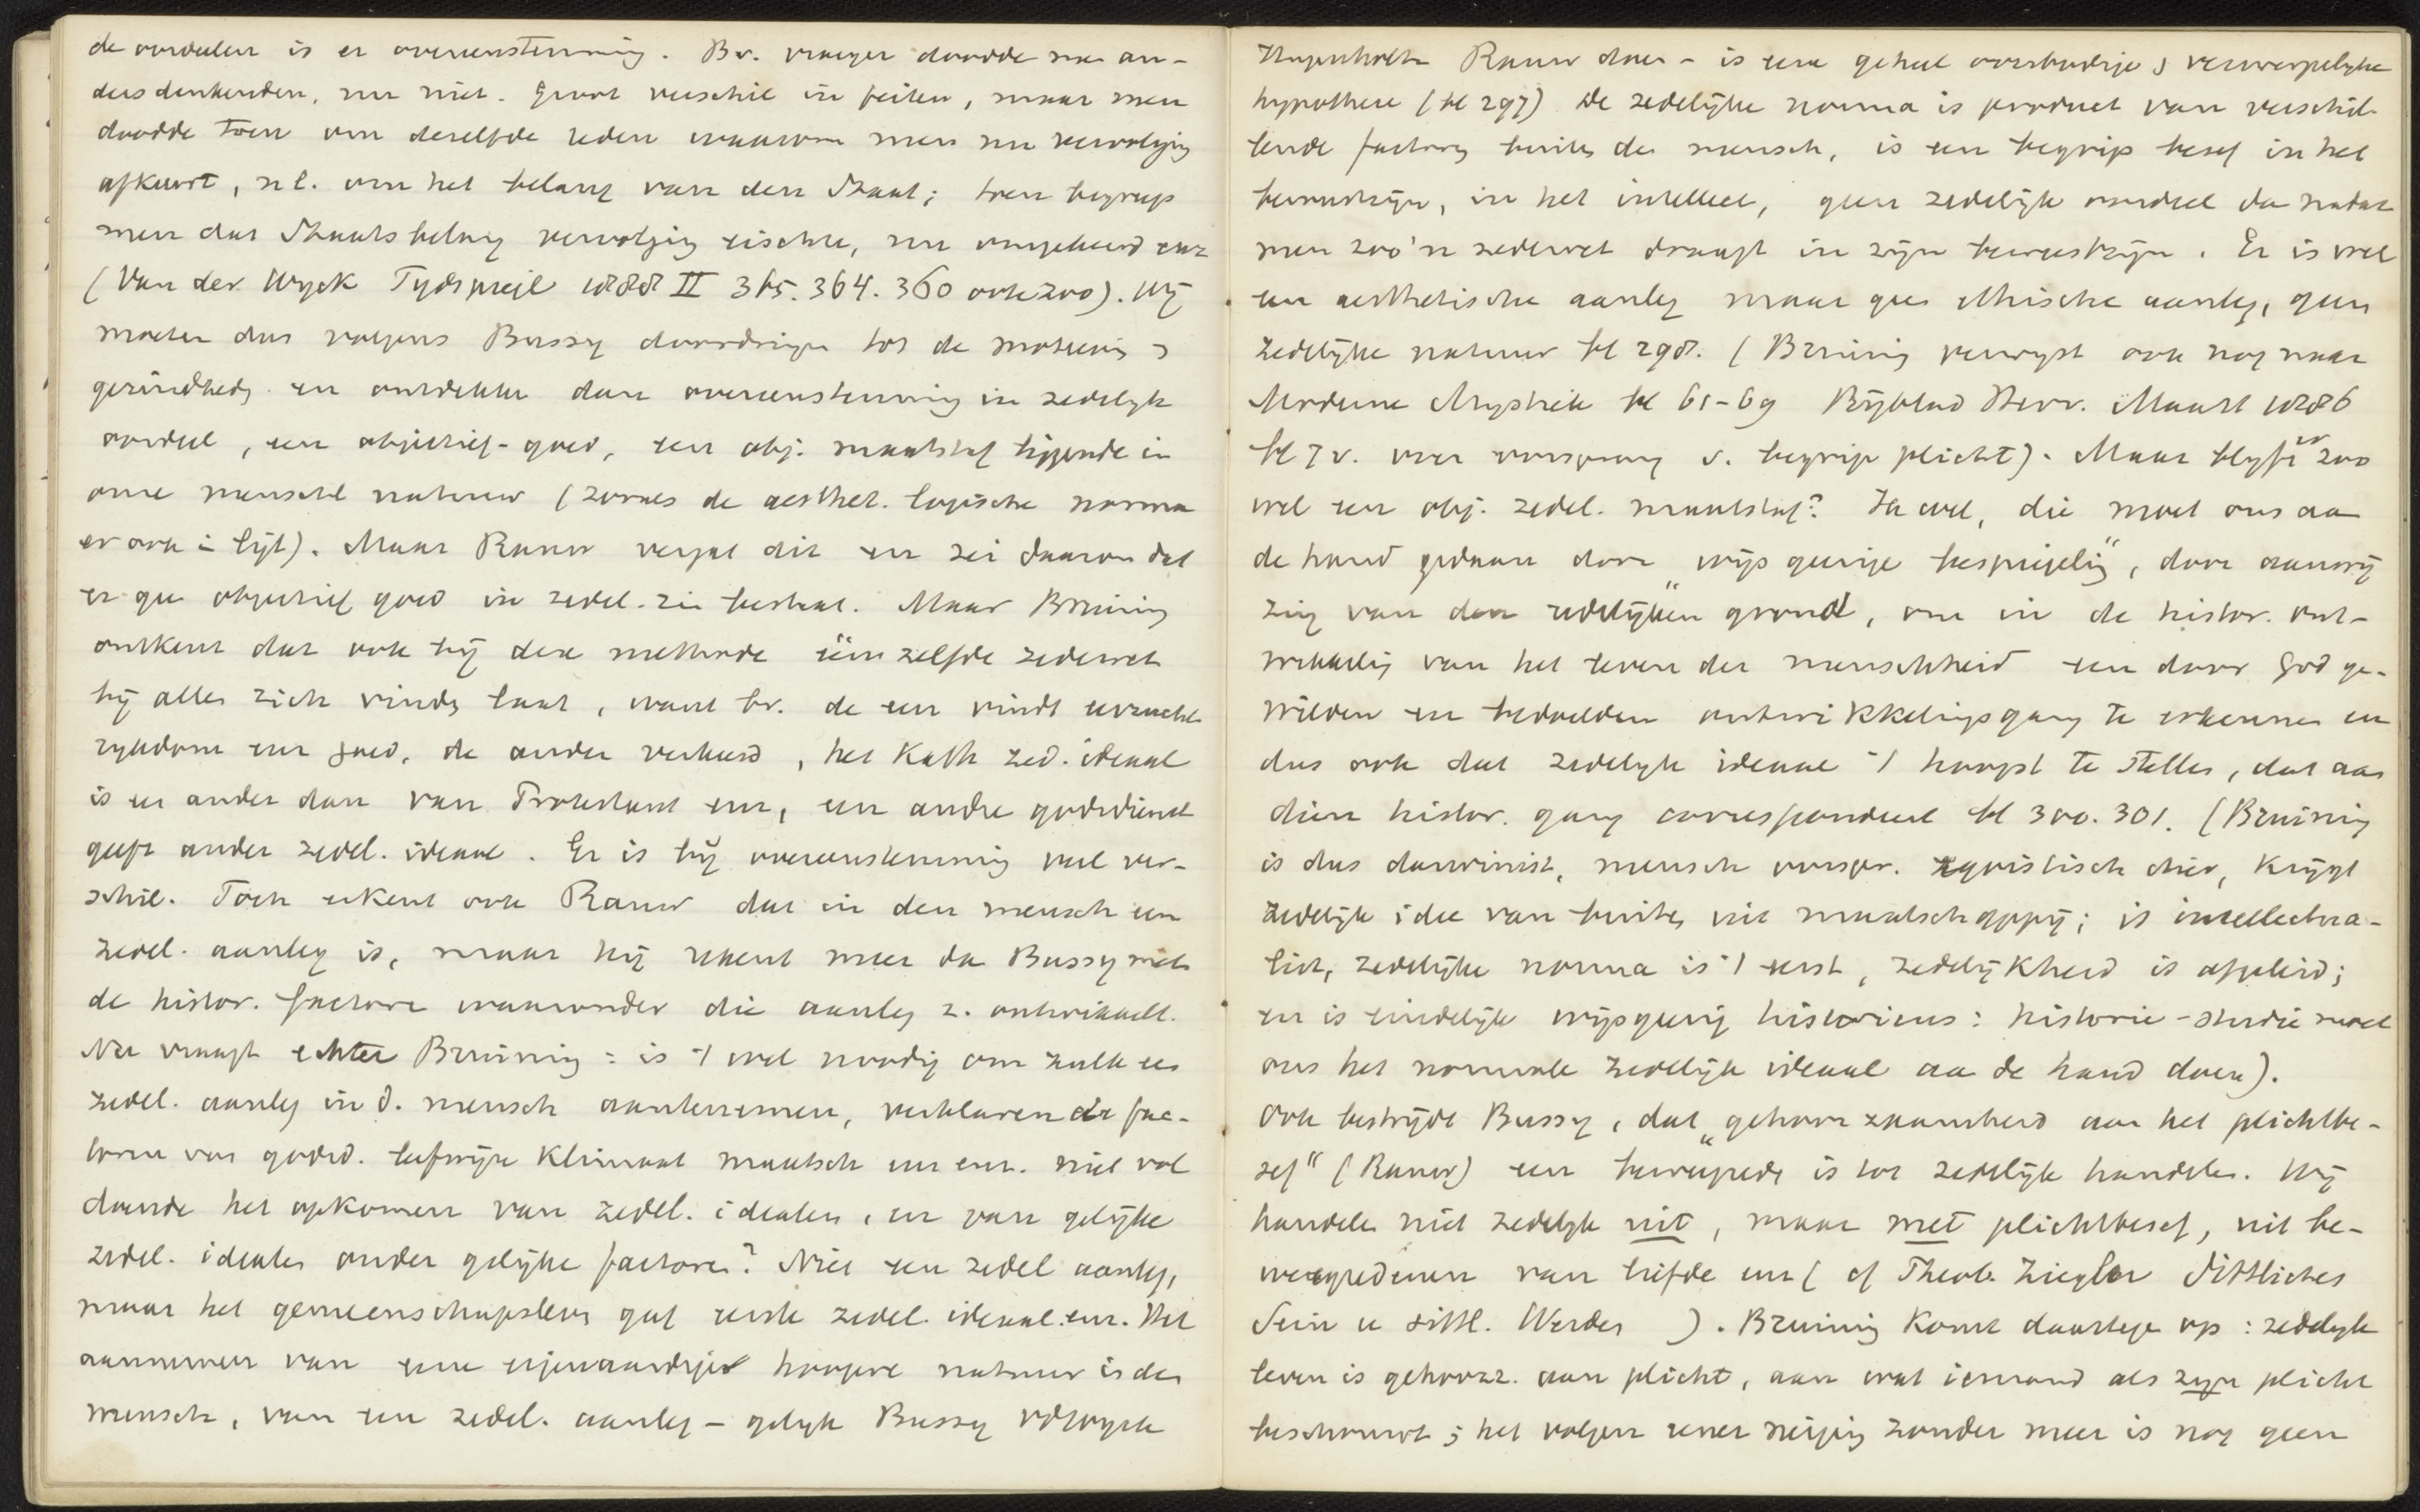 de oordeelen is er overeenstemming. Bv. vroeger doodde men an-
dersdenkenden, nu niet. Groot verschil in feiten, maar men
doodde toen om deselfde reden waarom men nu vervolging
afkeurt, nl. om het belang van den Staat; toen begreep
men dat Staatsbelang vervolging eischte, nu omgekeerd enz
(Van der Wyck Tydspiegel 1888 II 365. 364. 360 ook zoo). Wij
moeten dus volgens Bussy doordringen tot de motieven &
gezindheden en ontdekken dan overeenstemming in zedelyk
oordeel, een objectief-goed, een obj. maatstaf liggende in
onze menschel natuur (zooals de aesthet. logische norma
er ook in ligt). Maar Rauw. vergat dit en zei daarom dat
er geen objectief goed in zedel. zin bestaat. Maar Bruining
ontkent dat ook bij deze methode één zelfde zedewet
bij allen zich vinden laat, want bv. de een vindt
rykdom enz goed, de ander verkeerd, het Kath zed. ideaal
is een ander dan van Protestant enz, een andre godsdienst
geeft ander zedel. ideaal. Er is bij overeenstemming veel ver-
schil. Toch erkent ook Rauw. dat in den mensch een
zedel. aanleg is, maar hij rekent meer dan Bussy met
de histor. factoren waaronder die aanleg z. ontwikkelt.
Nu vraagt echter Bruining: is 't wel noodig om zulk een
zedel. aanleg in d. mensch aantenemen, verklaren de fac-
toren van godsd. leefwijze klimaat maatsch enz enz. niet vol
doende het opkomen van zedel. idealen, en van gelijke
zedel. idealen onder gelijke factoren? Niet een zedel aanleg,
maar het gemeenschapsleven gaf eerste zedel. ideaal. enz. Het
aannemen van eene eigenaardige hoogere natuur in den
mensch, van een zedel. aanleg – gelyk Bussy vdWyck
Hugenholtz Rauw. doen – is eene geheel overbodige & verwerpelyke
hypothese (bl 297) De zedelijke norma is product van verschil-
lende factoren buiten den mensch, is een begrip besef in het
bewustzijn, in het intellect, geen zedelijk oordeel dan nadat
men zoo'n zedewet draagt in zijn bewustzijn. Er is wel
een aesthetische aanleg maar geen ethische aanleg, geen
zedelijke natuur bl 298. (Bruining verwyst ook nog naar
Moderne Mystiek bl 61-69 Bijblad Herv. Maart 1886
bl 7 v. over oorsprong v. begrip plicht). Maar blyft er zoo
wel een obj. zedel. maatstaf? Ja wel, die moet ons aan
de hand gedaan door „wijsgeerige bespiegeling", door aanwij
zing van den „redelijken grond, om in de histor. ont-
wikkeling van het leven der menschheid een door God ge-
wilden en bedoelden ontwikkelingsgang te erkennen en
dus ook dat zedelyk ideaal 't hoogst te stellen, dat aan
dien histor. gang correspondeert bl 300. 301. (Bruining
is dus darwinist, mensch oorspr. egoistisch dier, krygt
zedelijk idee van buiten uit maatschappij; is intellectua-
list, zedelijke norma is 't eerst, zedelijkheid is afgeleid;
en is eindelijk wijsgeerig historicus: historie-studie moet
ons het normale zedelijk ideaal aan de hand doen).
Ook bestrijdt Bussy, dat „gehoorzaamheid aan het plichtbe-
sef" (Rauw.) een beweegrede is tot zedelijk handelen. Wij
handelen niet zedelyk uit, maar met plichtbesef, uit be-
weegredenen van liefde enz (cf Theob. Ziegler Sittliches
Sein u sittl. Werden ). Bruining komt daartegen op: zedelyk
leven is gehoorz. aan plicht, aan wat iemand als zijn plicht
beschouwt; het volgen eener neiging zonder meer is nog geen